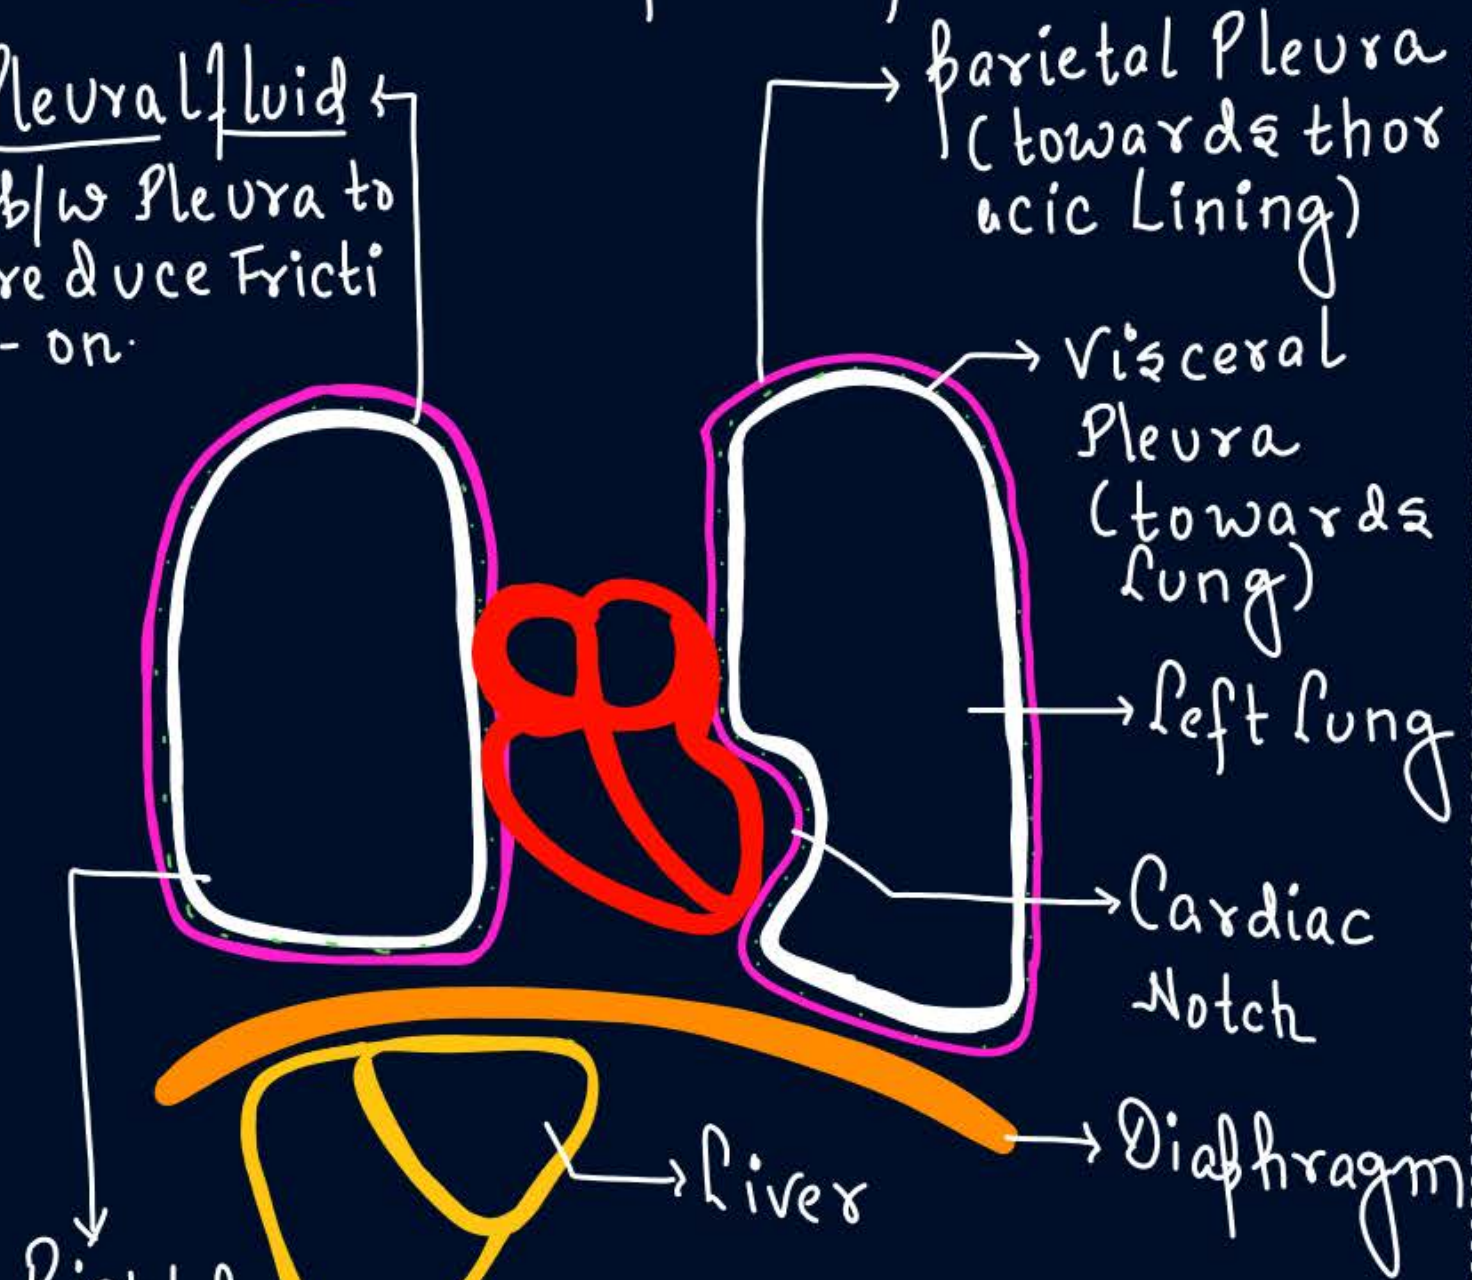 Pleural fluid
b/w Pleura to
reduce Fricti
- on.
Parietal Pleura
(towards thor
acic Lining)
Visceral
Pleura
(towards
lung)
Left lung
Cardiac
Notch
Diaphragm
Liver